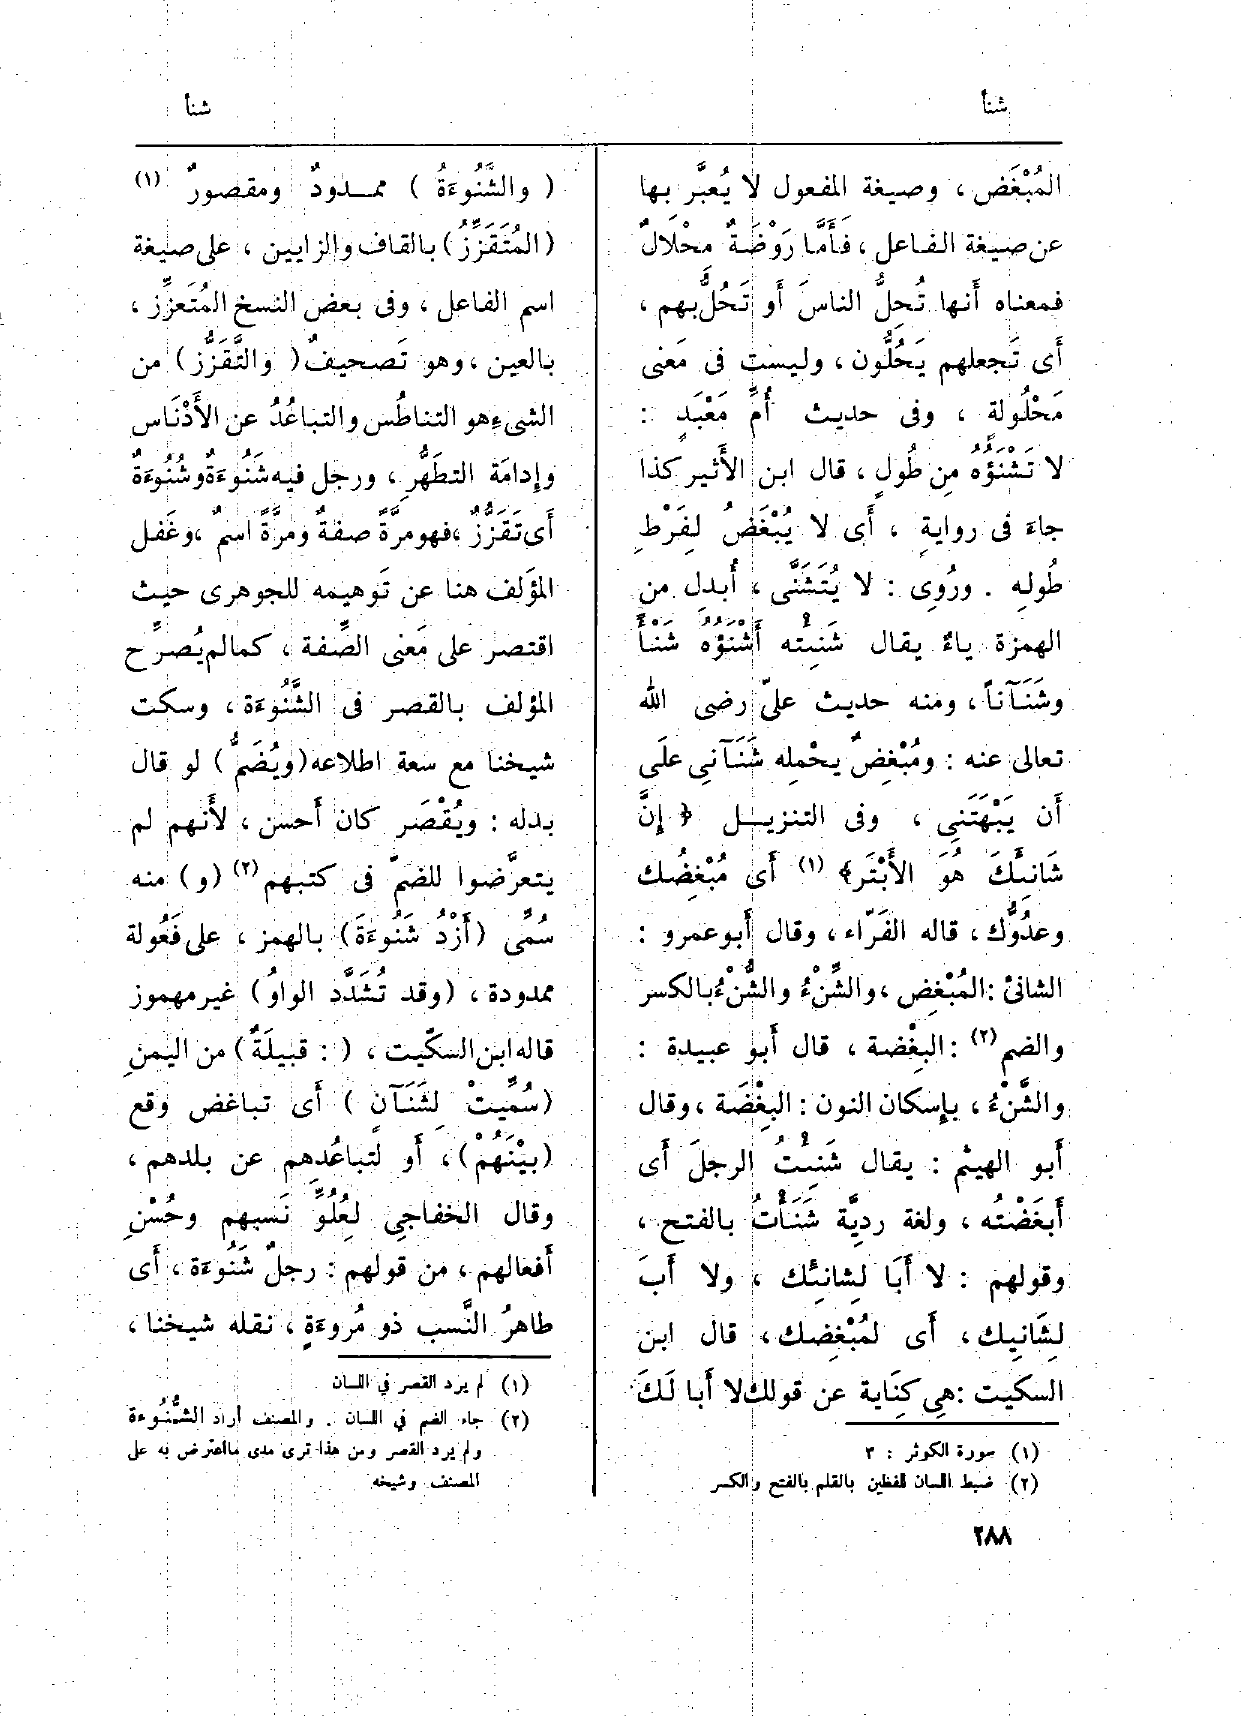 شنأ
شنأ
المُبْغَض، وصيغة المفعول لا يُعبَّر بها
عن صيغة الفاعل، فأَمَّا رَوْضَةٌ مِحْلالٌ
فمعناه أَنها تُحِلُّ الناسَ أَو تَحُلُّ بهم،
أَى تَجعلهم يَحُلُّون، وليست فى مَعنى
مَحْلُولة، وفى حديث أُمِّ مَعْبَدٍ :
لا تَشْنَؤُه مِن طُولٍ، قال ابن الأَثير كذا
جاءَ فى روايةٍ ، أَى لا يُبْغَضُ لِفَرْطِ
طُولِه . ورُوِى : لا يُتَشَنَّى، أُبدِل من
الهمزة ياءٌ يقال شَنِئته أَشْنَؤُه شَنْأً
وشَنَآناً، ومنه حديث علىّ رضى الله
تعالى عنه : ومُبْغِضٌ يحْمِله شَنَآنِى علَى
أَن يَبْهَتَنِى ، وفى التنزيل ﴿ إِنَّ
شَانِئَكَ هُوَ الأَبْتَر﴾ (١) أَى مُبْغِضُك
وعدُوُّك، قاله الفَرّاء، وقال أَبو عمرو :
الشانئ : المُبْغِض، والشِّنْءُ والشُّنْءُ بالكسر
والضم(٢) : البِغْضة ، قال أَبو عبيدة :
والشَّنْءُ، بإِسكان النون : البِغْضَة، وقال
أَبو الهيثم : يقال شَنِئْتُ الرجلَ أَى
أَبغَضْتُه ، ولغة رديَّة شَنَأْتُ بالفتح،
وقولهم : لا أَبَا لِشانِئك ، ولا أَبَ
لِشَانِيك، أَى لمُبْغِضك، قال ابن
السكيت : هِى كِنَاية عن قولك لا أَبا لَكَ
(١) سورة الكوثر : ٣
(٢) ضبط اللسان للفظين بالقلم بالفتح والكسر
( والشَّنُوءَةُ ) ممـدودٌ ومقصورٌ (١)
(المُتَقَزِّزُ) بالقاف والزايين ، على صيغة
اسم الفاعل ، وفى بعض النسخ المُتَعزِّز،
بالعين ، وهو تَصحيفٌ ( والتَّقَزُّزُ ) من
الشىءِ هو التناطُس والتباعُدُ عن الأَدْنَاس
وإِدامَة التطهُّرِ ، ورجل فيه شَنُوءَةٌ وشُنُوءَةٌ
أَى تَقَزُّزٌ ، فهو مرَّةً صفةٌ ومرَّةً اسمٌ ، وغَفل
المؤَلف هنا عن تَوهيمه للجوهرى حيث
اقتصر على مَعنى الصِّفة ، كما لم يُصرِّح
المؤلف بالقصر فى الشَّنُوءَة ، وسكت
شيخنا مع سعة اطلاعه (ويُضَمُّ ) لو قال
بدله : ويُقْصَر كان أَحسن ، لأَنهم لم
يتعرَّضوا للضمّ فى كتبهم (٢) (و) منه
سُمِّى (أَزْدُ شَنُوءَةَ) بالهمز ، على فَعُولة
ممدودة ، (وقد تُشَدَّد الواوُ) غير مهموز
قاله ابن السكِّيت ، ( : قبيلَةٌ) من اليمنِ
(سُمِّيتْ لِشَنَآنٍ ) أَى تباغض وقع
(بيْنَهُمْ)، أَو لتباعُدِهِم عن بلدهم ،
وقال الخفاجِى لِعُلُوِّ نَسبهم وحُسْنِ
أَفعالهم ، من قولهم : رجلٌ شَنُوءَة ، أَى
طاهرُ النَّسب ذو مُروءَةٍ ، نقله شيخنا ،
(١) لم يرد القصر في اللسان
(٢) جاء الضم في اللسان . والمصنف أراد الشُّنُوءة
ولم يرد القصر ومن هذا ترى مدى ما اعترض به على
المصنف وشيخه
٢٨٨